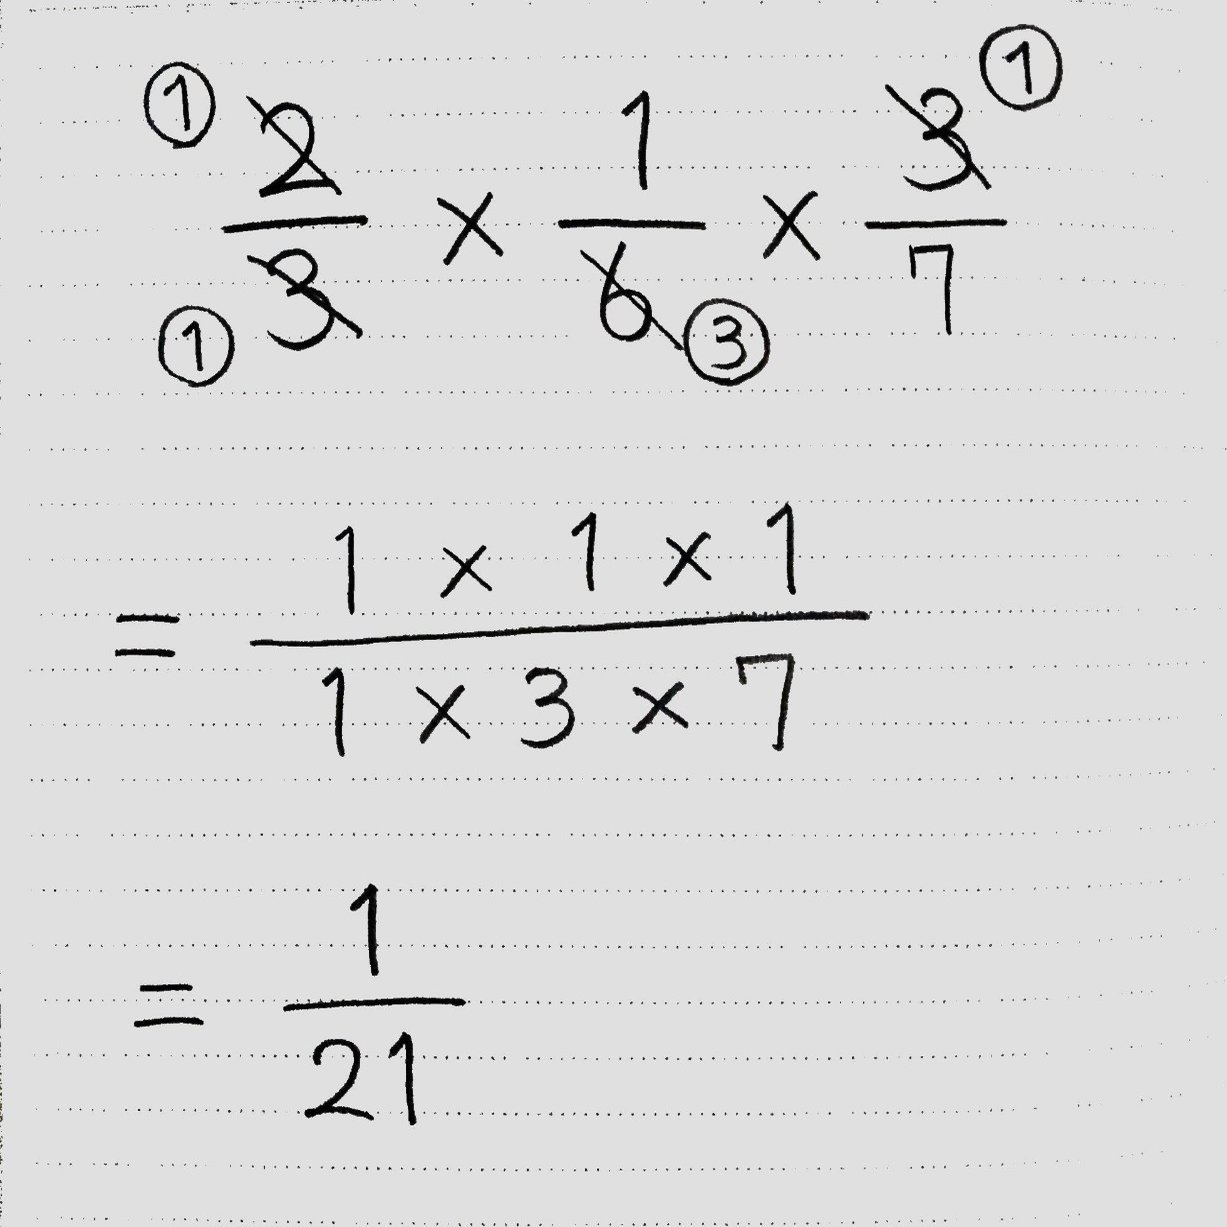 ① 2/3 ① × 1/6 ③ × 3/7 ①
= 1 × 1 × 1 / 1 × 3 × 7
= 1/21